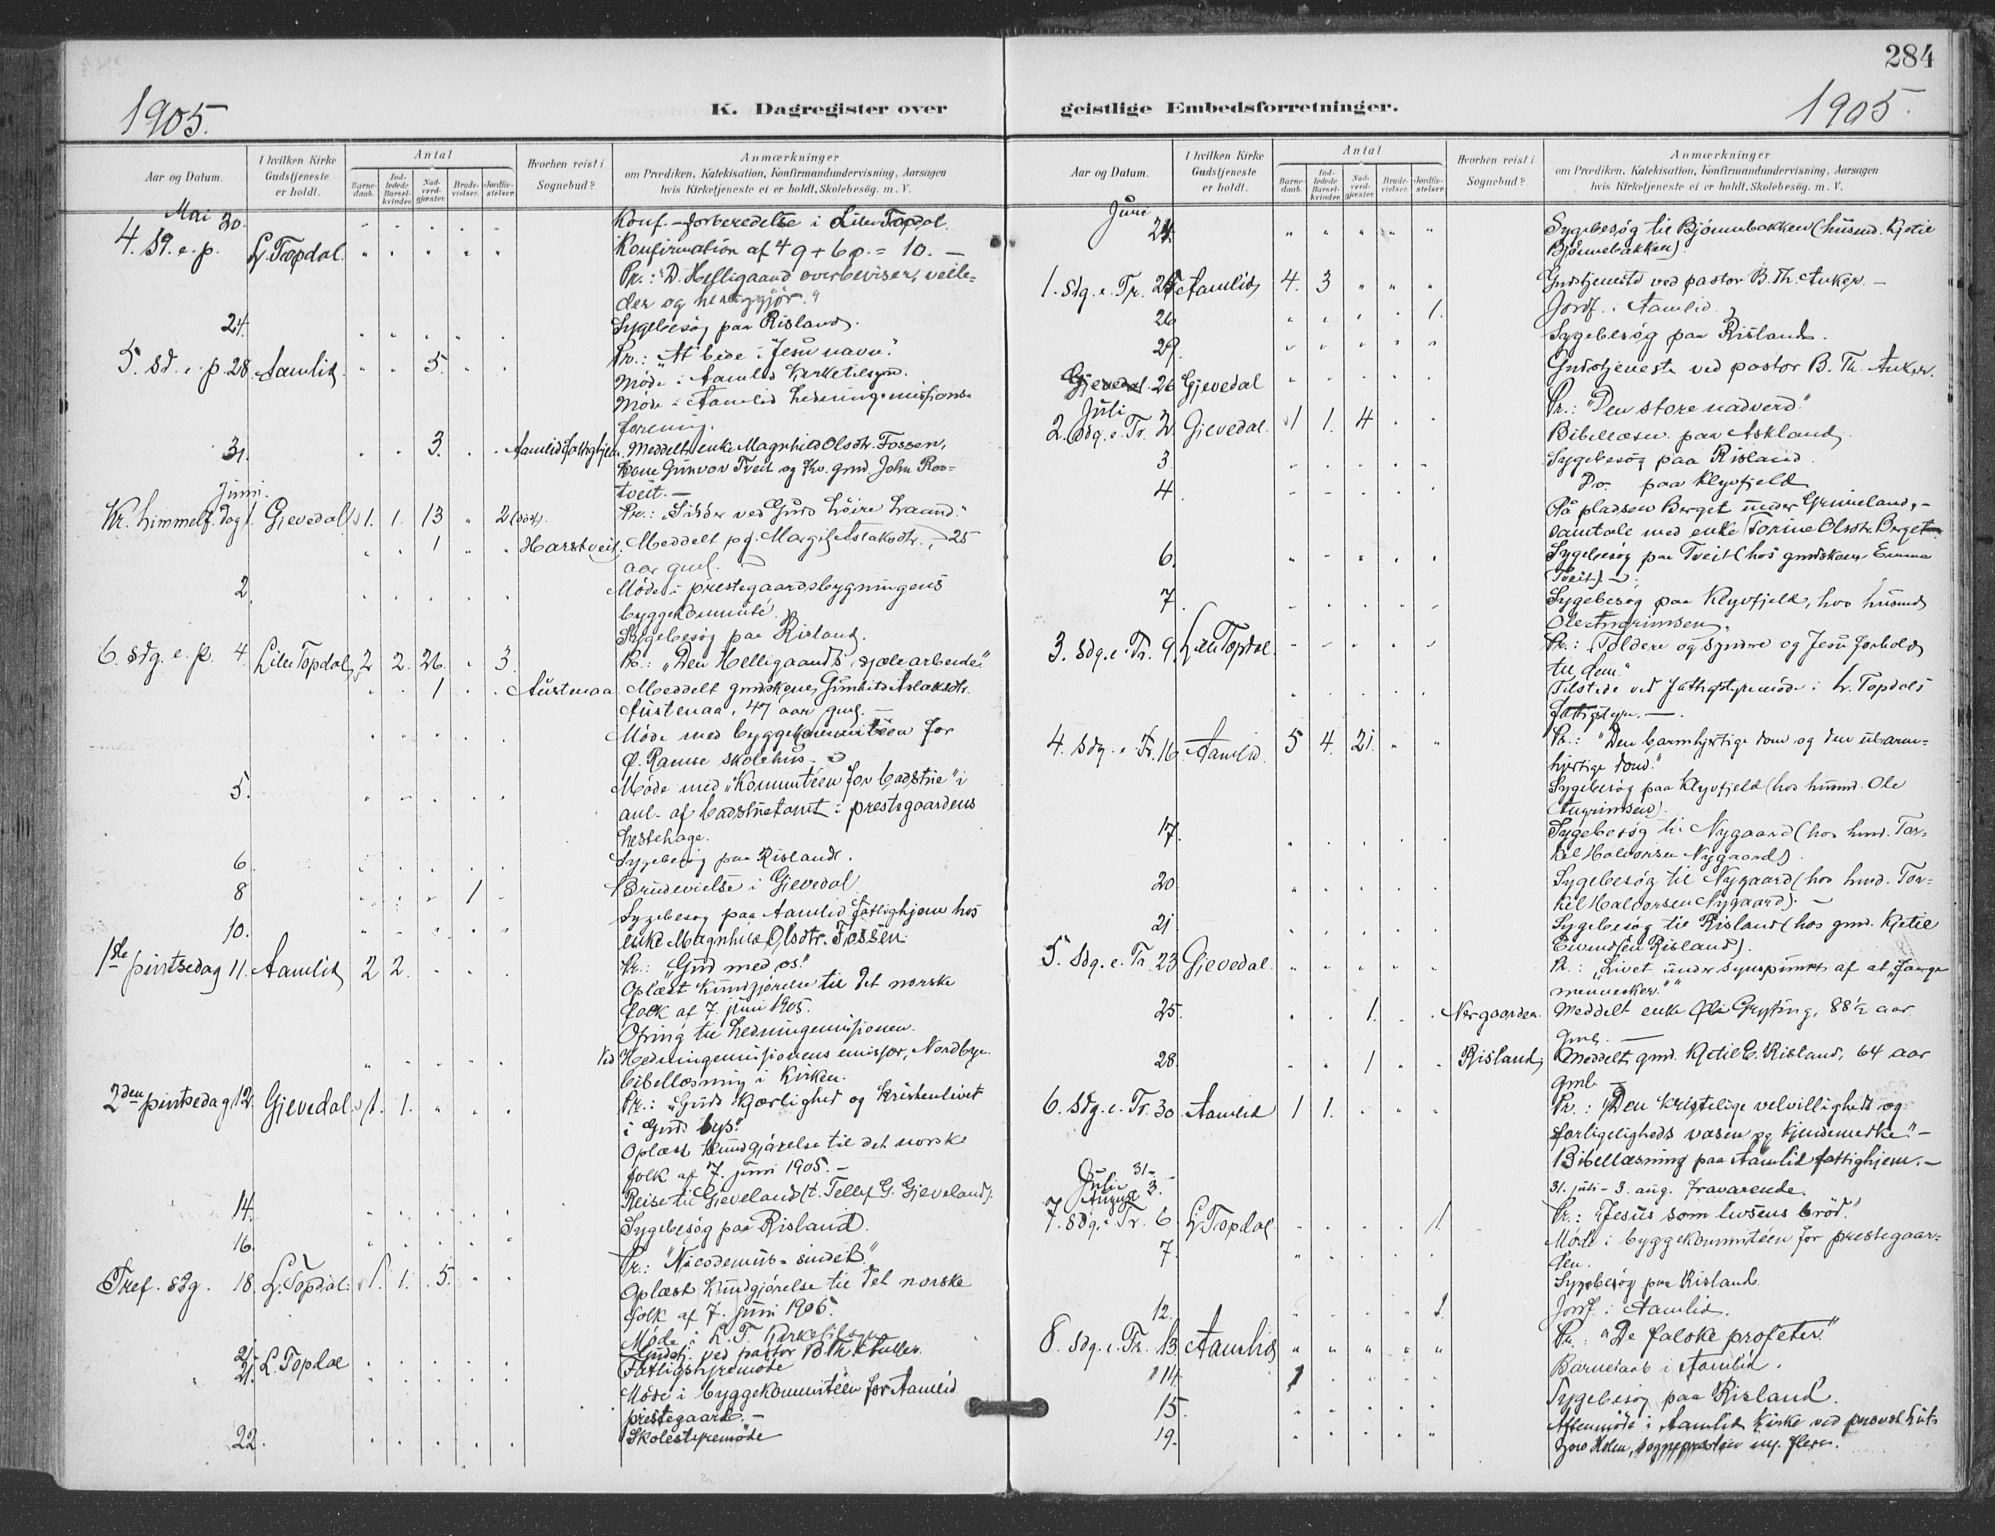 284
1905.
K. Dagregister over
geistlige Embedsforretninger.
1905.
Aar og Datum.
I hvilken Kirke Gudstjeneste er holdt.
Antal
Barnedaab.
Indledede Barselkvinder.
Nadverdgjester.
Brudevielser.
Jordfæstelser.
Hvorhen reist i Sognebud?
Anmærkninger
om Prædiken, Katekisation, Konfirmandundervisning, Aarsagen
hvis Kirketjeneste ei er holdt. Skolebesøg. m. V.
Mai 20. Konf.-forberedelse i Lille Topdal.
4. sg. e. p. L. Topdal Konfirmation af 4 g + 6 p. = 10. —
Pr.: "D. Helligaand overbeviser, veile-
der og herliggjør."
24. Sygebesøg paa Risland.
5. sd. e. p. 28 Aamlid 5. Pr.: "At bede i Jesu navn."
Møde i Aamlid kirketilsyn.
Møde i Aamlid hedningemissions-
forening.
31. 3. Aamlid fattighjem. Meddelt enke Magnhild Olsdtr. Fossen,
Kone Gunvor Tveit og Kv. gmd John Ros-
tveit. —
Juni
Kr. himmelf. dag 1. Gjevedal 1. 1. 13 2 (død).
1 Harstveit. Meddelt pg. Margit Aslaksdtr., 25
aar gml.
2 Møde i prestegaardsbygningens
byggekomite.
Sygebesøg paa Risland.
6. sdg. e. p. 4. Lille Topdal 2 2. 26. 3. Pr.: "Den Helligaands sjælearbeide"
1 Austenaa Meddelt gmdskone Gunhild Aslaksdtr.
Austenaa, 47 aar gml. —
Møde med byggekommitéen for
Ø. Ramse skolehus.
5. Møde med "Kommitéen for badstue" i
anl. af badstuetomt i prestegaardens
hestehage.
6 Sygebesøg paa Risland.
8 1 Brudevielse i Gjevedal
10. Sygebesøg paa Aamlid fattighjem hos
enke Magnhild Olsdtr. Fossen.
1ste pintsedag 11. Aamlid 2 2. Pr.: "Gud med os."
Oplæst kundgjørelse til det norske
folk af 7. juni 1905.
Ofring til hedningemissionen.
Ved Hedningemissionens emissær, Nordbye
bibellæsning i kirken.
2den pintsedag 12. Gjevedal 1. 1. Pr.: "Guds kjærlighed og kristenlivet
i Guds lys."
Oplæst kundgjørelse til det norske
folk af 7. juni 1905. —
14. Reise til Gjeveland (t. Tellef G. Gjeveland).
16. Sygebesøg paa Risland.
Tref. sdg. 18. L. Topdal. 1. 1. 5. Pr.: "Nicodemus-sindet."
Oplæst kundgjørelse til det norske
folk af 7. juni 1905.
Møde i L. T. Kirketilsyn
21. L. Topdal Gudstj. ved pastor
21. Fattigstyremøde
Møde i byggekommitéen for Aamlid
prestegaard. —
22. Skolestyremøde
Aar og Datum.
I hvilken Kirke Gudstjeneste er holdt.
Antal
Barnedaab.
Indledede Barselkvinder.
Nadverdgjester.
Brudevielser.
Jordfæstelser.
Hvorhen reist i Sognebud?
Anmærkninger
om Prædiken, Katekisation, Konfirmandundervisning, Aarsagen
hvis Kirketjeneste ei er holdt. Skolebesøg. m. V.
Juni
24. Sygebesøg til Bjønnebakken (husmd. Kjetil
Bjønnebakken).
1. sdg. e. Tr. 25 Aamlid 4. 3 Gudstjeneste ved pastor B. Th. Anker. —
26 1. Jordf. i Aamlid.
29. Sygebesøg paa Risland.
Gjevedal 26 Gjevedal Gudstjeneste ved pastor B. Th. Anker.
Juli
2. Sdg. e. Tr. 2 Gjevedal. 1 1. 4 Pr.: "Den store nadverd."
Bibellæsn. paa Askland.
3 Sygebesøg paa Risland.
4 Do paa Klyvfjeld
På pladsen Berget under Grimeland, -
samtale med enke Torine Olsdtr. Berget
6. Sygebesøg paa Tveit (hos gmdskone Emma
Tveit). —
7 Sygebesøg paa Klyvfjeld, hos husmd
Ole Angrimsen.
3. sdg. e. Tr. 9. Lille Topdal Pr.: "Toldere og syndre og Jesu forhold
til dem."
Tilstede ved fattigstyremøde i L. Topdals
fattigstyre. —
4. sdg. e. Tr. 16 Aamlid 5 4. 21. Pr.: "Den barmhjertige dom og den ubarm-
hjertige dom."
Sygebesøg paa Klyvfjeld (hos husmd. Ole
Angrimsen).
17. Sygebesøg til Nygaard (hos hmd. Tor-
kel Halvorsen Nygaard).
20 Sygebesøg til Nygaard (hos hmd. Tor-
kel Halvorsen Nygaard). —
21 Sygebesøg til Risland (hos gmd. Kjetil
Eivindsen Risland).
5. sdg. e. Tr. 23 Gjevedal Pr.: "Livet under synspunkt af at "fange
mennesker.""
25. 1. Nergaarden. Meddelt enke Gryting, 88½ aar
gml. —
28 1 Risland, Meddelt gmd. Kjetil E. Risland, 64 aar
gml. —
6. sdg. e. Tr. 30 Aamlid 1 1. Pr.: "Den kristelige velvilligheds og
forligeligheds væsen og kjendemerke." —
Bibellæsning paa Aamlid fattighjem. —
Juli 31-
August 3. 31. juli - 3. aug. fraværende.
7. sdg. e. Tr. 6 L. Topdal 1 Pr.: "Jesus som livsens brød."
7 Møde i byggekommitéen for prestegaar-
den.
Sygebesøg paa Risland.
12. 1 Jordf. i Aamlid.
8. sdg. e. Tr. 13 Aamlid Pr.: "De falske profeter"
14. 1 Barnedaab i Aamlid.
15 Sygebesøg paa Risland.
19. Aftenmøde i Aamlid kirke ved provst
Holm, sogneprester m. flere.